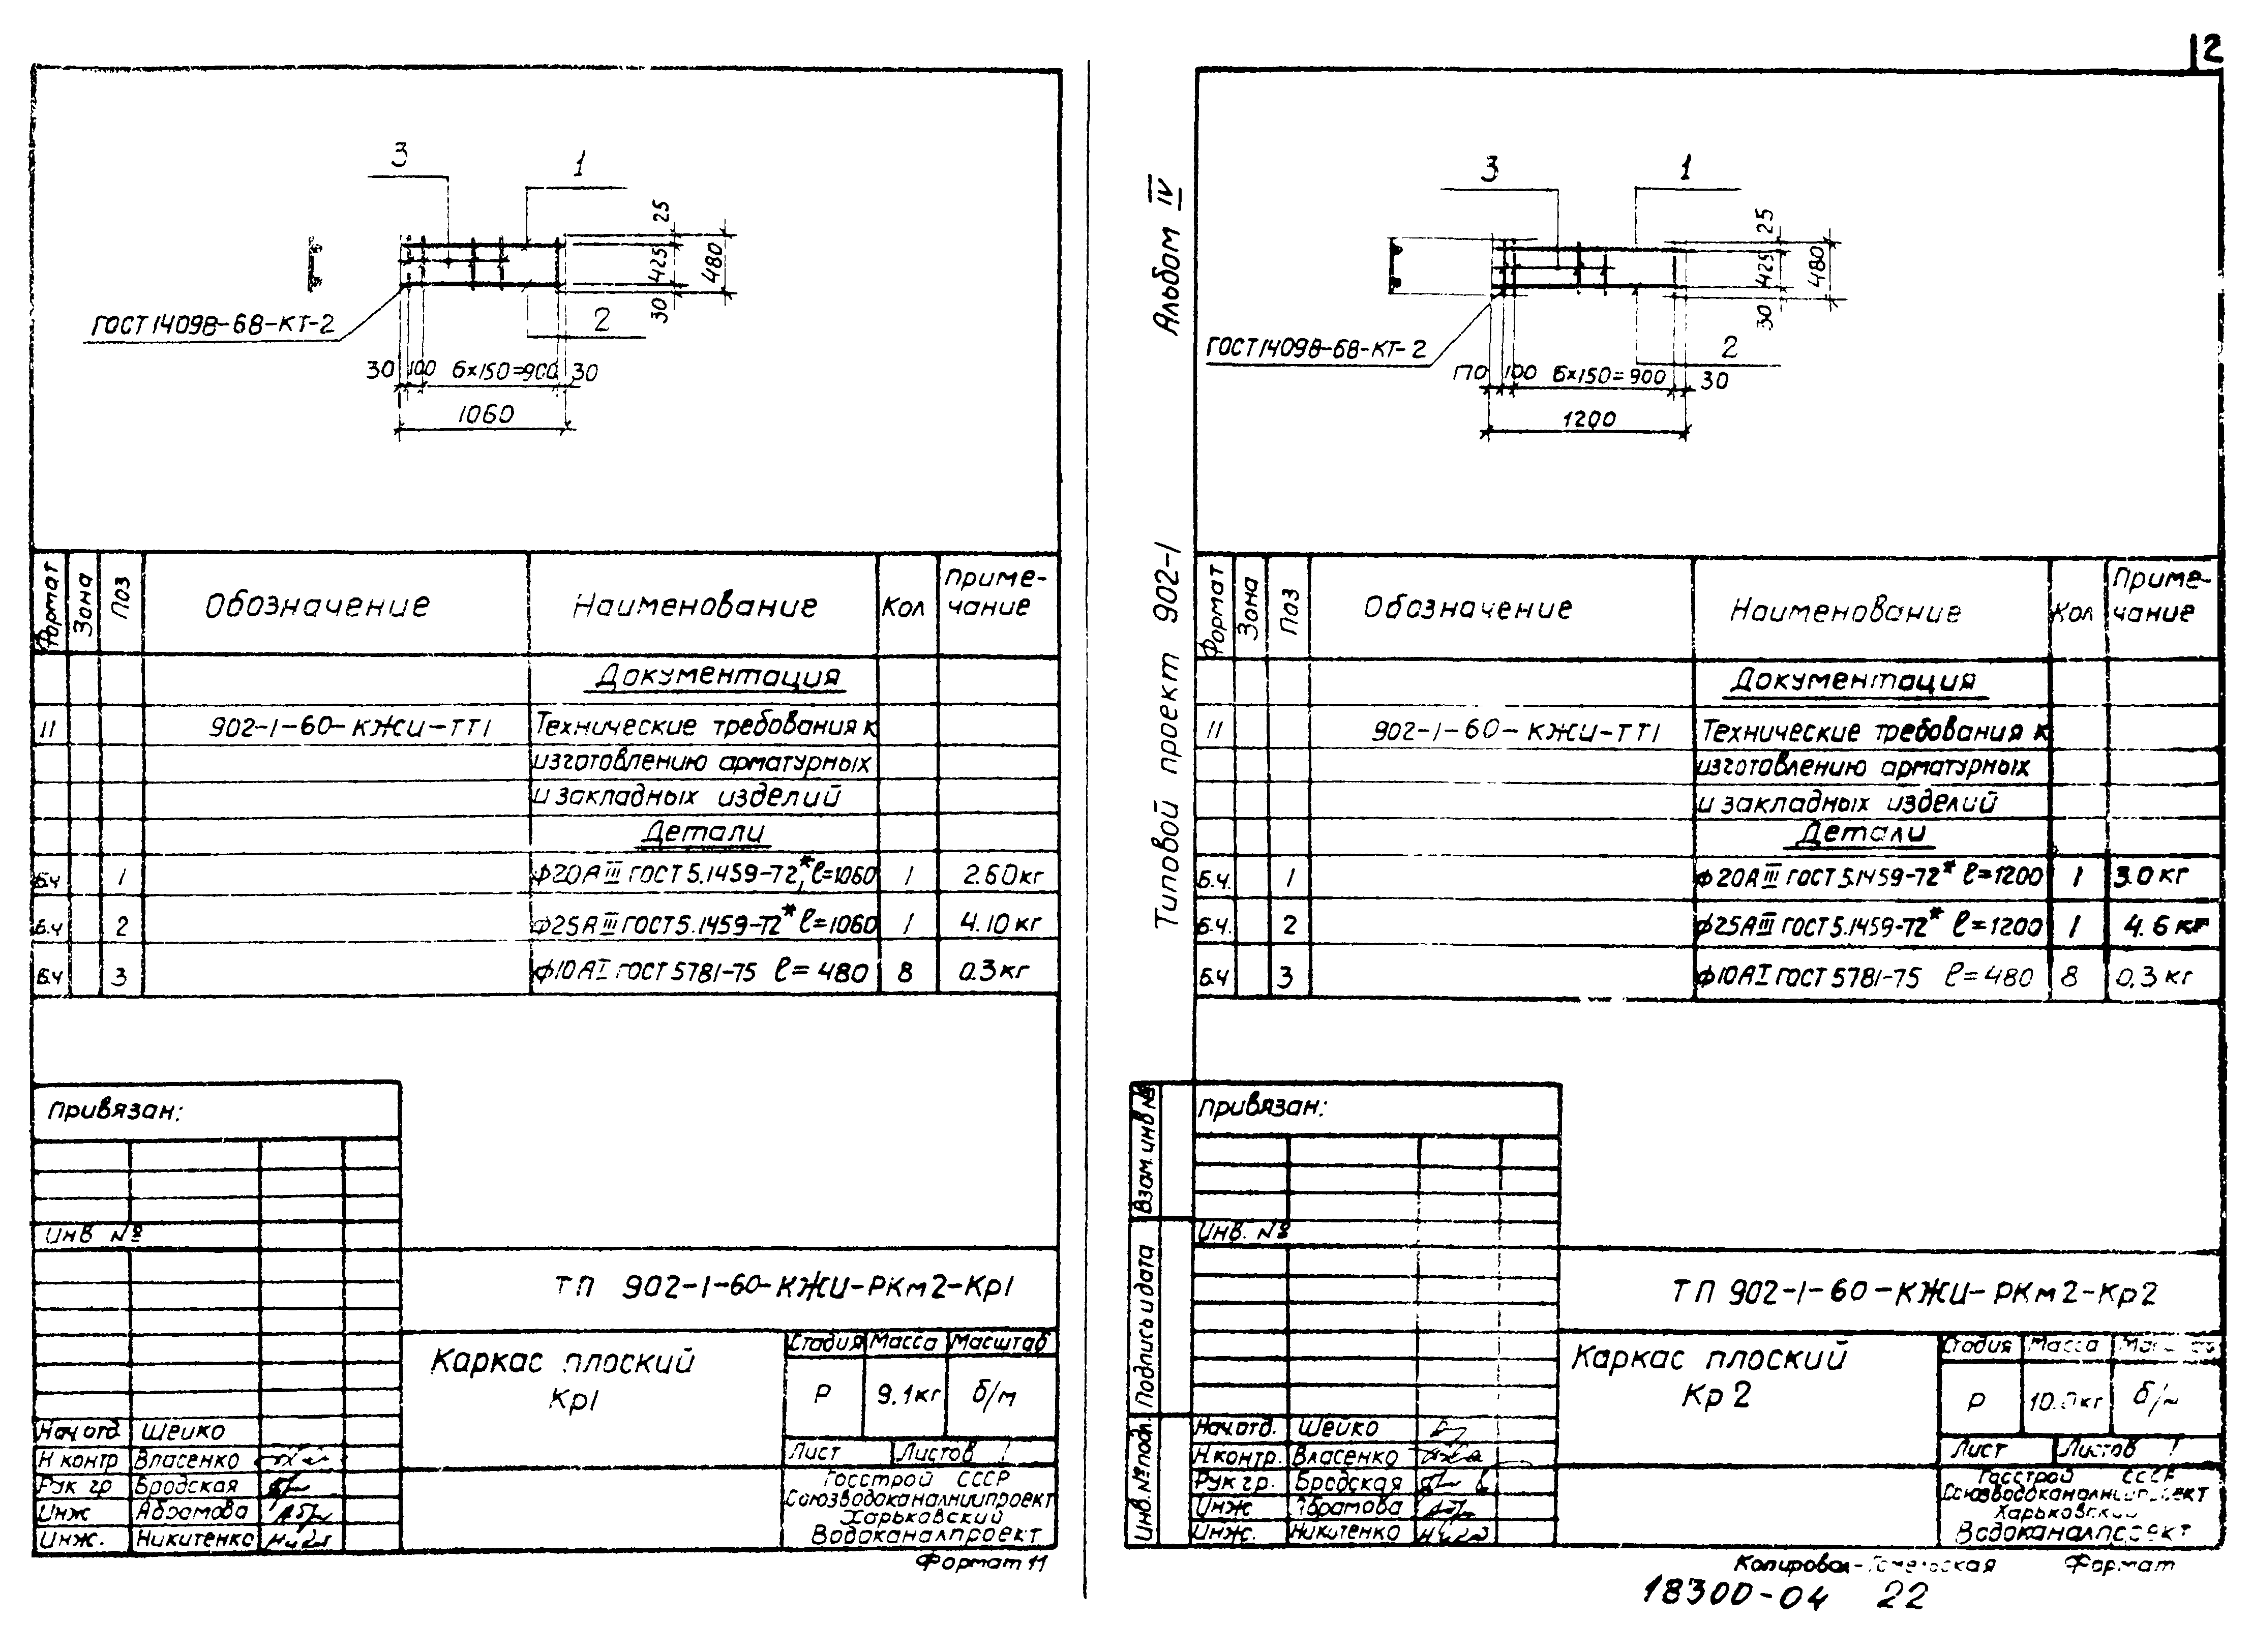 12
3
1
25
425
480
30
2
ГОСТ 14098-68-КТ-2
30 100 6х150=900 30
1060
Формат Зона Поз Обозначение Наименование Кол Приме-
чание
Документация
11 902-1-60-КЖИ-ТТ1 Технические требования к
изготовлению арматурных
и закладных изделий
Детали
Б.ч 1 ф20АIII ГОСТ 5.1459-72*, ℓ=1060 1 2.60кг
Б.ч 2 ф25АIII ГОСТ 5.1459-72* ℓ=1060 1 4.10кг
Б.ч 3 ф10АI ГОСТ 5781-75 ℓ=480 8 0.3кг
Привязан:
Инв №
ТП 902-1-60-КЖИ-РКм2-Кр1
Каркас плоский
Кр1
Стадия Масса Масштаб
Р 9.1кг б/м
Лист Листов 1
Нач.отд Шейко
Н контр Власенко
Рук гр Бродская
Инж Абрамова
Инж. Никитенко
Госстрой СССР
Союзводоканалниипроект
Харьковский
Водоканалпроект
Формат 11
Альбом IV
Типовой проект 902-1
3
1
25
425
480
30
2
ГОСТ 14098-68-КТ-2
170 100 6х150=900 30
1200
Формат Зона Поз Обозначение Наименование Кол Приме-
чание
Документация
11 902-1-60-КЖИ-ТТ1 Технические требования к
изготовлению арматурных
и закладных изделий
Детали
Б.ч. 1 ф20АIII ГОСТ 5.1459-72* ℓ=1200 1 3.0кг
Б.ч. 2 ф25АIII ГОСТ 5.1459-72* ℓ=1200 1 4.6кг
Б.ч 3 ф10АI ГОСТ 5781-75 ℓ=480 8 0.3кг
Взам.инв №
Подпись и дата
Инв.№ подл.
Привязан:
Инв. №
ТП 902-1-60-КЖИ-РКм2-Кр2
Каркас плоский
Кр2
Стадия Масса
Р б/м
Лист Листов 1
Нач.отд. Шейко
Н.контр. Власенко
Рук гр. Бродская
Инж Абрамова
Инж. Никитенко
Госстрой СССР
Союзводоканалниипроект
Харьковский
Водоканалпроект
Копировал- Формат
18300-04 22